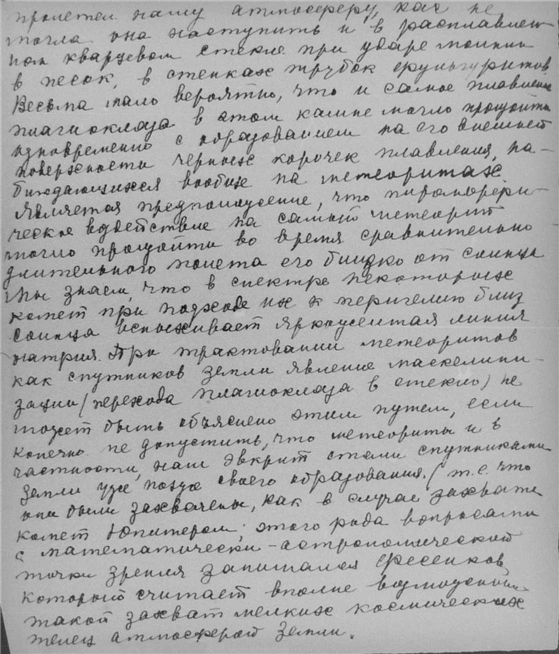 пролетел нашу атмосферу, как не
могла она наступить и в расплавлен-
ном кварцевом стекле при ударе молнии
в песок, в стенках трубок фульгуритов
Весьма мало вероятно, что и самое плавление
плагиоклаза в этом камне могло произойти
одновременно с образованием на его внешней
поверхности черных корочек плавления, на-
блюдающихся вообще на метеоритах
Является предположение, что
ческое воздействие на самый метеорит
могло произойти во время сравнительно
длительного полета его близко от солнца
Мы знаем, что в спектре некоторых
комет при подходе их к перигелию близ
солнца вспыхивает яркожелтая линия
натрия. При трактовании метеоритов
как спутников Земли явление маскелини-
зации (перехода плагиоклаза в стекло) не
может быть объяснено этим путем, если
конечно не допустить, что метеориты и в
частности, наш эвкрит стали спутниками
Земли уже позже своего образования. (т.е. что
они были захвачены, как в случае захвата
комет Юпитером; этого рода вопросами
с математически-астрономической
точки зрения занимался Фесенков
который считает вполне возможным
такой захват мелких космических
телец атмосферой Земли.